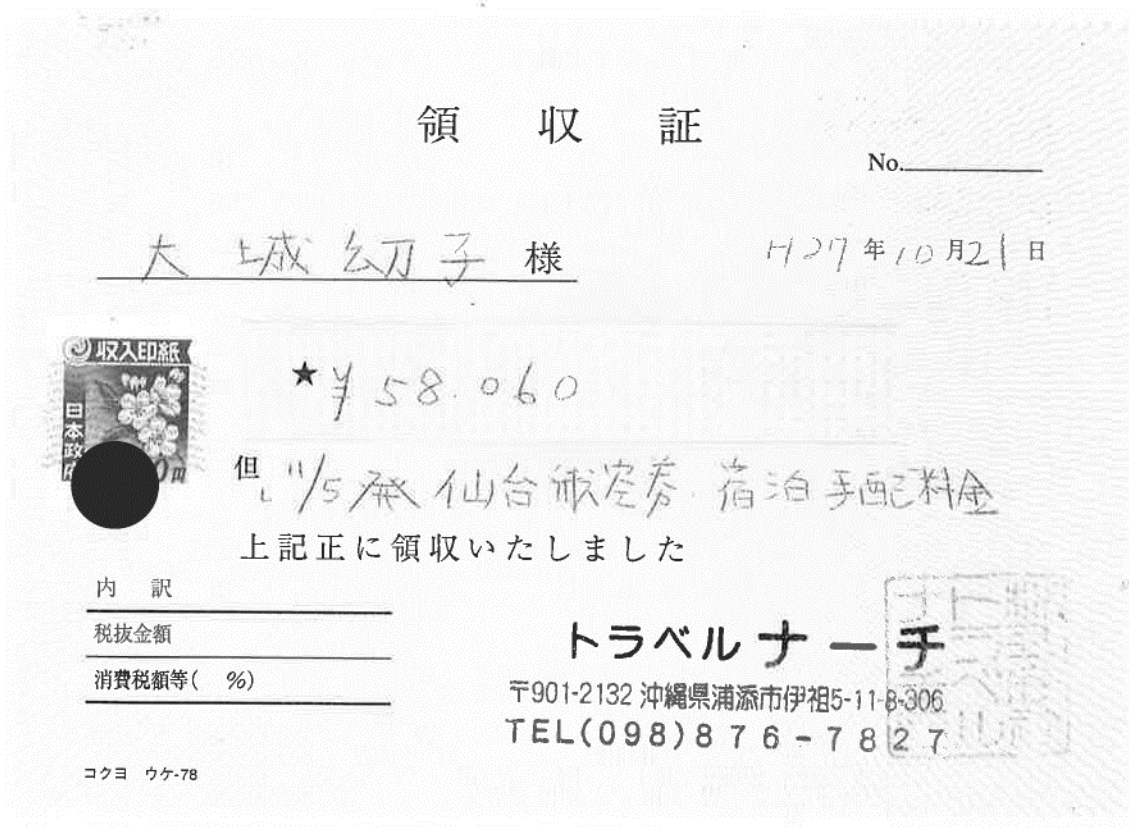 領 収 証
No.
大城幼子 様
H27年10月21日
収入印紙
日本政府
★¥58.060
但し 11/5発 仙台航空券.宿泊手配料金
上記正に領収いたしました
内 訳
税抜金額
消費税額等( %)
トラベルナーチ
〒901-2132 沖縄県浦添市伊祖5-11-8-306
TEL(098)876-7827
コクヨ ウケ-78